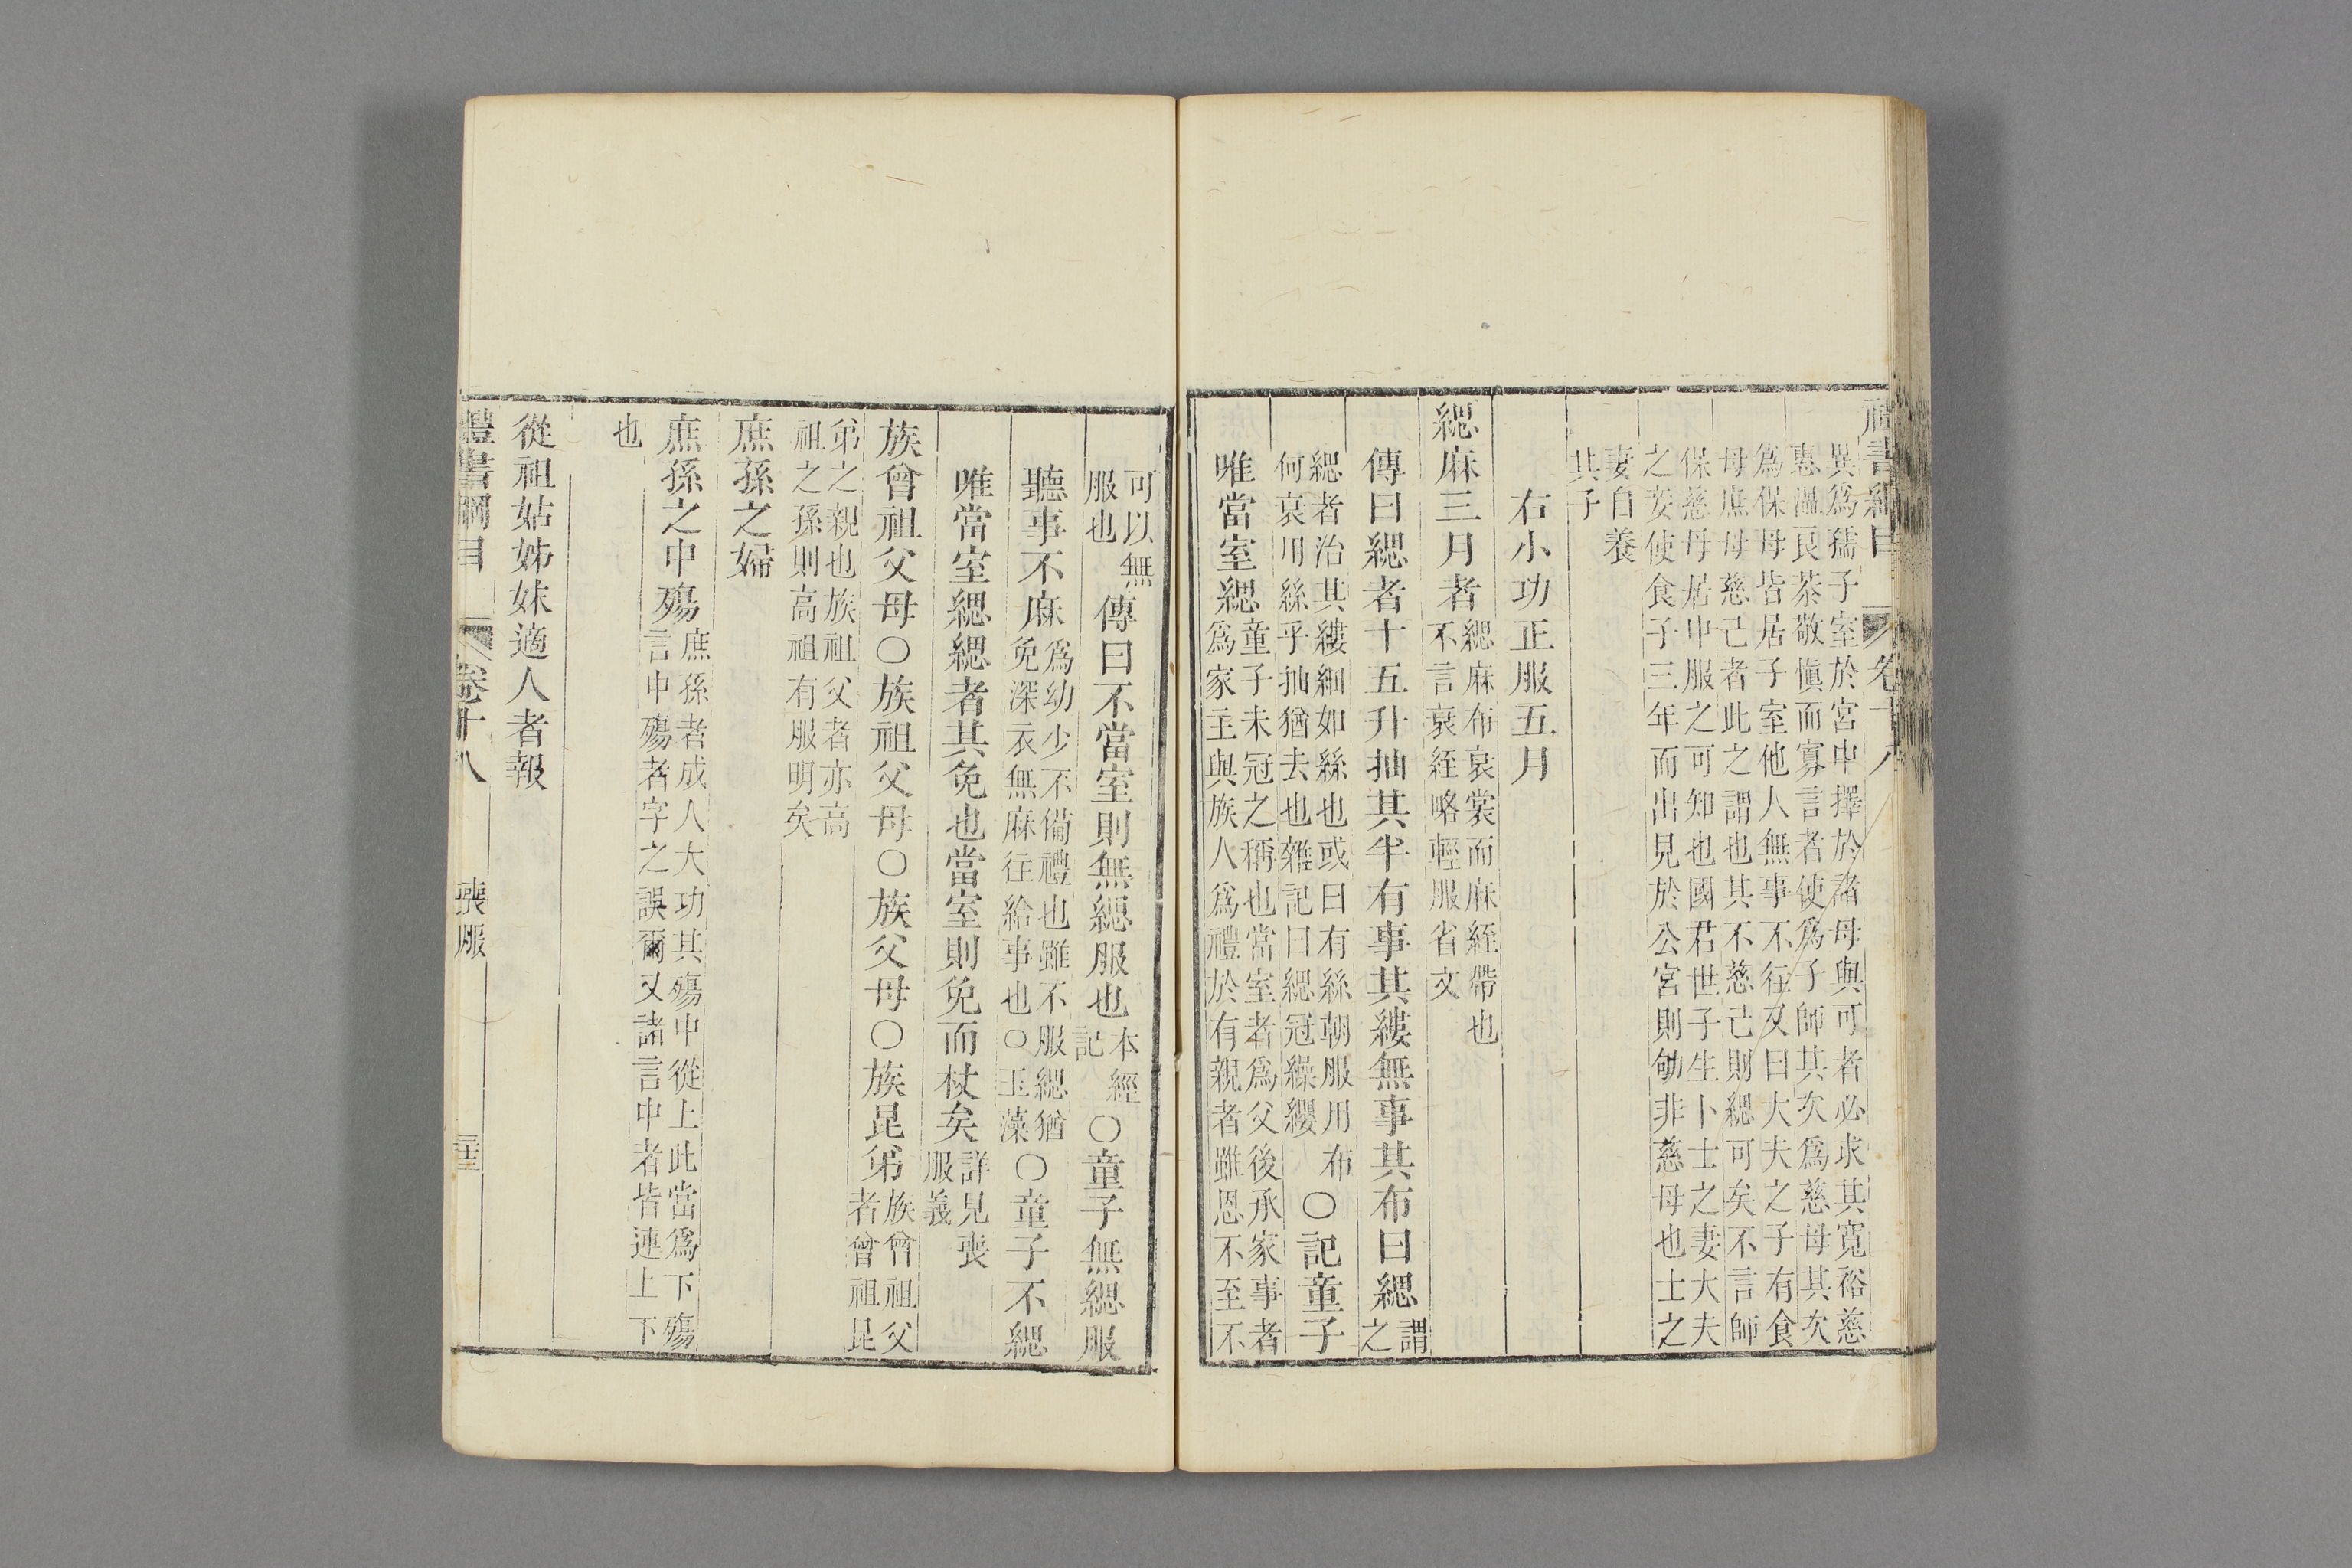 禮書綱目 卷十八
異爲孺子室於宮中擇於諸母與可者必求其寬裕慈
惠溫良恭敬愼而寡言者使爲子師其次爲慈母其次
爲保母皆居子室他人無事不往又曰大夫之子有食
母庶母慈己者此之謂也其不慈己則緦可矣不言師
保慈母居中服之可知也國君世子生卜士之妻大夫
之妾使食子三年而出見於公宮則劬非慈母也士之
妻自養
其子
右小功正服五月
緦麻三月者
緦麻布衰裳而麻絰帶也
不言衰絰略輕服省文
傳曰緦者十五升抽其半有事其縷無事其布曰緦
謂
之
緦者治其縷細如絲也或曰有絲朝服用布
何衰用絲乎抽猶去也雜記曰緦冠繰纓
〇記童子
唯當室緦
童子未冠之稱也當室者爲父後承家事者
爲家主與族人爲禮於有親者雖恩不至不
可以無
服也
傳曰不當室則無緦服也
本經
記
〇童子無緦服
聽事不麻
爲幼少不備禮也雖不服緦猶
免深衣無麻往給事也〇玉藻
〇童子不緦
唯當室緦緦者其免也當室則免而杖矣
詳見喪
服義
族曾祖父母〇族祖父母〇族父母〇族昆弟
族曾祖父
者曾祖昆
弟之親也族祖父者亦高
祖之孫則高祖有服明矣
庶孫之婦
庶孫之中殤
庶孫者成人大功其殤中從上此當爲下殤
言中殤者字之誤爾又諸言中者皆連上下
也
從祖姑姊妹適人者報
禮書綱目 卷十八 喪服